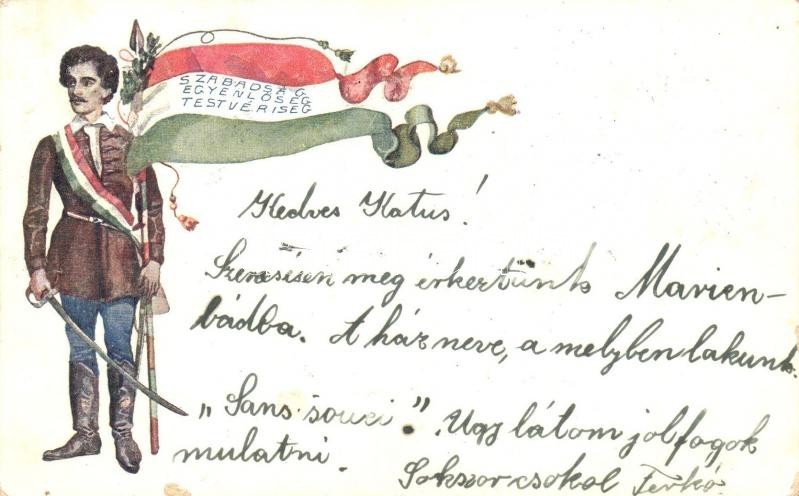 SZABADSÁG
EGYENLŐSÉG
TESTVÉRISÉG
Kedves Katus!
Szerencsésen meg érkeztünk Marien-
bádba. A ház neve, a melyben lakunk.
„Sans souci". Ugy látom jol fogok
mulatni.
Sokszor csokol Ferkó